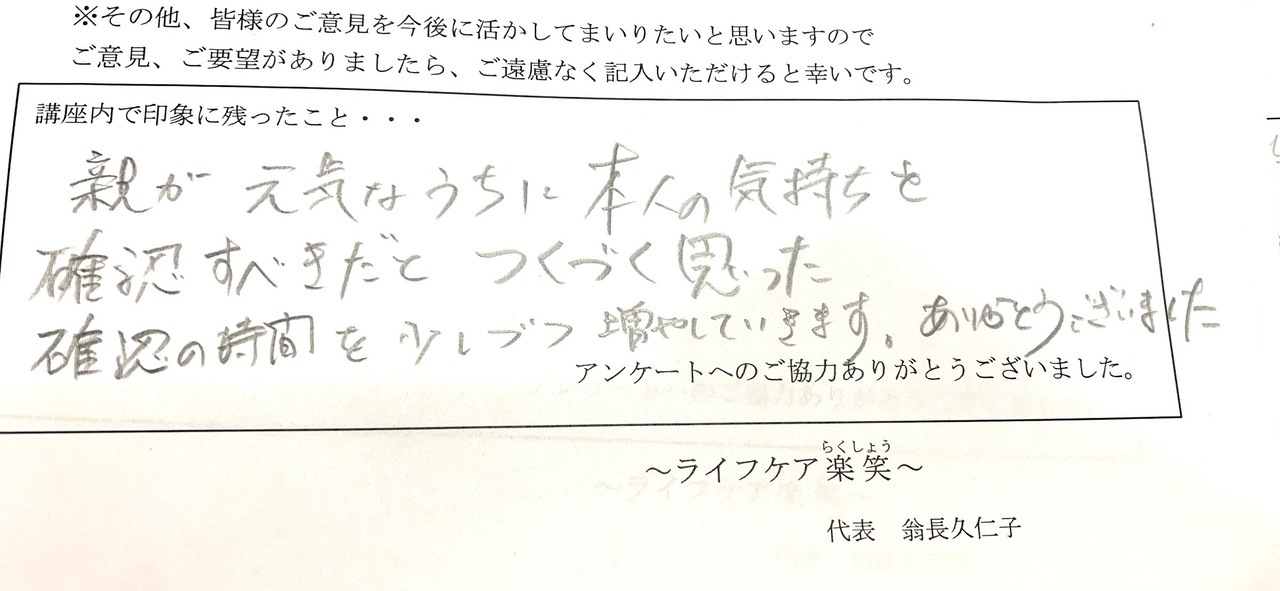 ※その他、皆様のご意見を今後に活かしてまいりたいと思いますので
ご意見、ご要望がありましたら、ご遠慮なく記入いただけると幸いです。
講座内で印象に残ったこと・・・
親が元気なうちに本人の気持ちを
確認すべきだと つくづく思った
確認の時間を少しづつ増やしていきます。ありがとうございました
アンケートへのご協力ありがとうございました。
らくしょう
～ライフケア楽笑～
代表　翁長久仁子